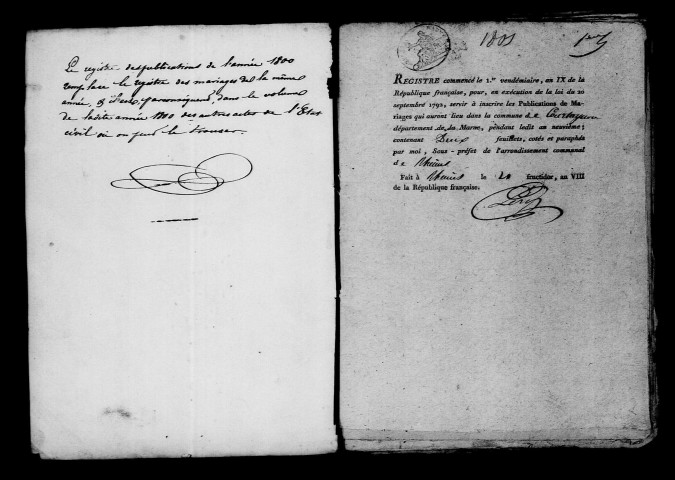 Le registre des publications de l'année 1800
remplace le registre des mariages de la même
année, dans le volume
de ladite année 1800 des autres actes de l'Etat
civil où on peut le trouver.
1801
REGISTRE commencé le 1.er vendémiaire, an IX de la
République française, pour, en exécution de la loi du 20
septembre 1792, servir à inscrire les Publications de Ma-
riages qui auront lieu dans la commune de
département de la Marne, pendant ledit an neuvième;
contenant Deux feuillets, cotés et paraphés
par moi, Sous-préfet de l'arrondissement communal
de Rheims
Fait à Rheims le 20 fructidor, an VIII
de la République française.